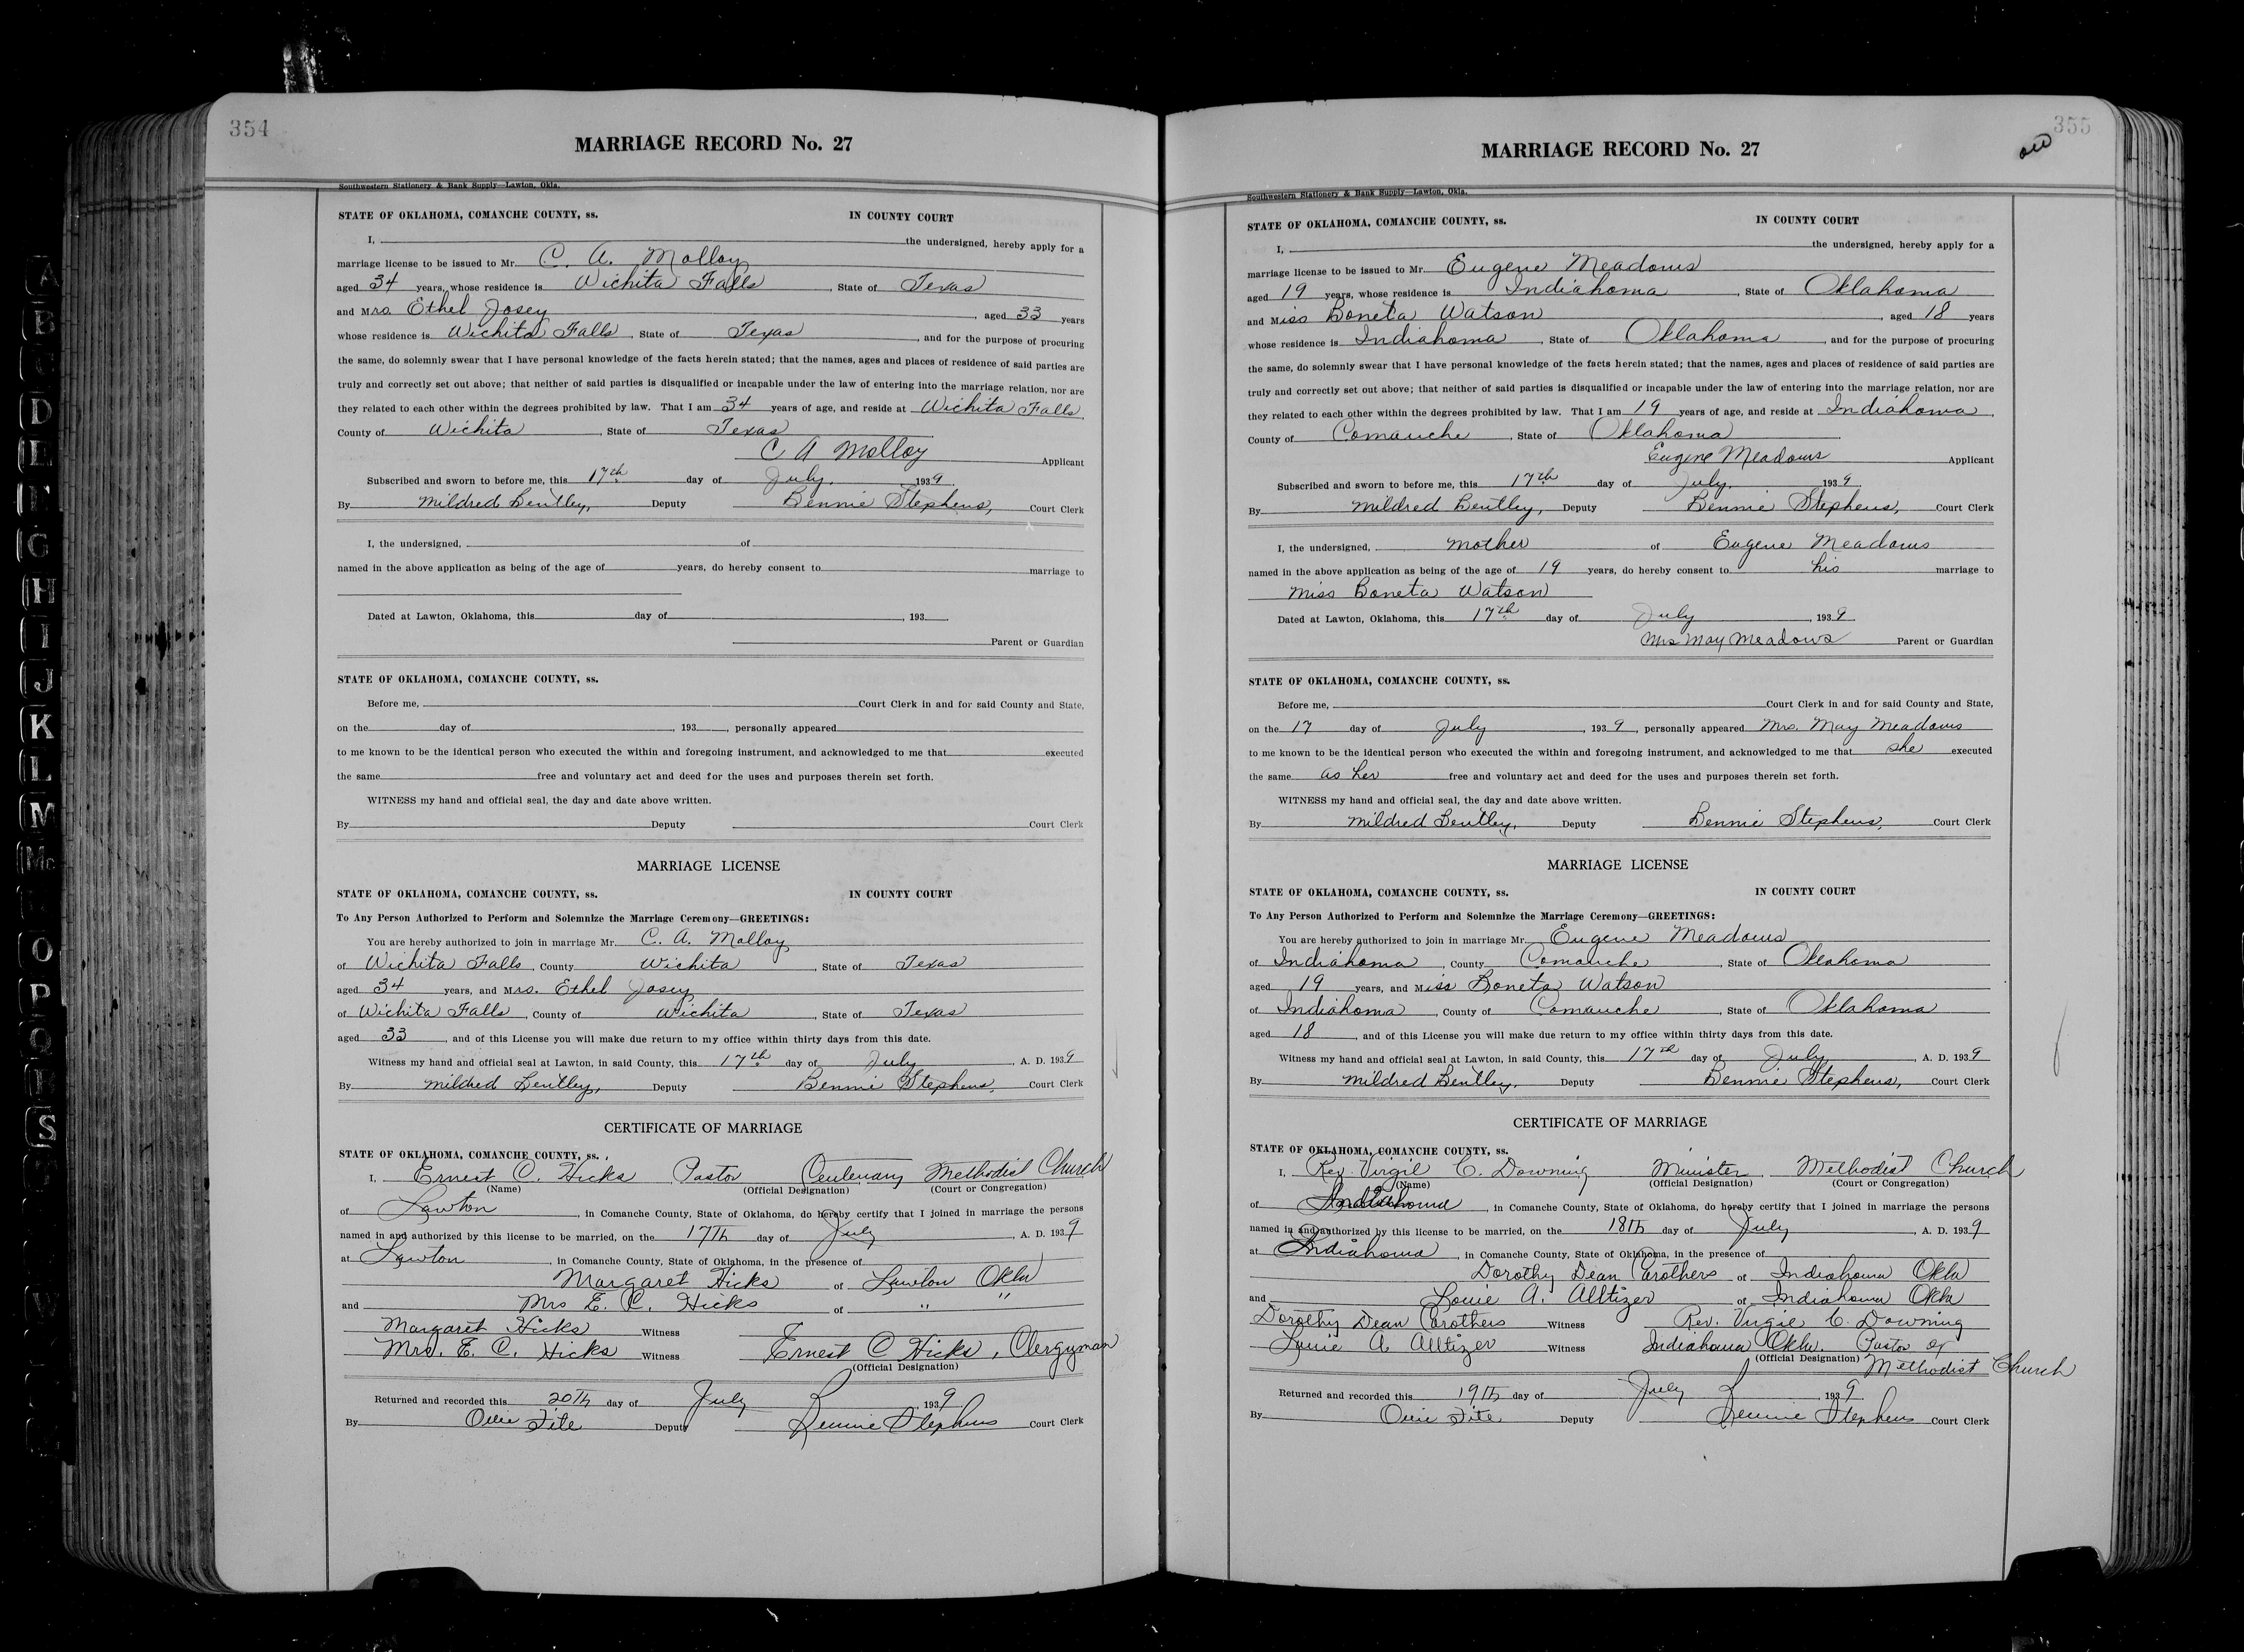 354
MARRIAGE RECORD No. 27
Southwestern Stationery & Bank Supply—Lawton, Okla.
STATE OF OKLAHOMA, COMANCHE COUNTY, ss. IN COUNTY COURT
I, the undersigned, hereby apply for a
marriage license to be issued to Mr. C. A. Molloy
aged 34 years, whose residence is Wichita Falls, State of Texas
and Mrs. Ethel Josey, aged 33 years
whose residence is Wichita Falls, State of Texas, and for the purpose of procuring
the same, do solemnly swear that I have personal knowledge of the facts herein stated; that the names, ages and places of residence of said parties are
truly and correctly set out above; that neither of said parties is disqualified or incapable under the law of entering into the marriage relation, nor are
they related to each other within the degrees prohibited by law. That I am 34 years of age, and reside at Wichita Falls,
County of Wichita, State of Texas
C A Molloy Applicant
Subscribed and sworn to before me, this 17th day of July, 1939.
By Mildred Bentley, Deputy Bennie Stephens, Court Clerk
I, the undersigned, of
named in the above application as being of the age of years, do hereby consent to marriage to
Dated at Lawton, Oklahoma, this day of , 193 .
Parent or Guardian
STATE OF OKLAHOMA, COMANCHE COUNTY, ss.
Before me, Court Clerk in and for said County and State,
on the day of , 193 , personally appeared
to me known to be the identical person who executed the within and foregoing instrument, and acknowledged to me that executed
the same free and voluntary act and deed for the uses and purposes therein set forth.
WITNESS my hand and official seal, the day and date above written.
By Deputy Court Clerk
MARRIAGE LICENSE
STATE OF OKLAHOMA, COMANCHE COUNTY, ss. IN COUNTY COURT
To Any Person Authorized to Perform and Solemnize the Marriage Ceremony—GREETINGS:
You are hereby authorized to join in marriage Mr. C. A. Molloy
of Wichita Falls, County Wichita, State of Texas
aged 34 years, and Mrs. Ethel Josey
of Wichita Falls, County of Wichita, State of Texas
aged 33, and of this License you will make due return to my office within thirty days from this date.
Witness my hand and official seal at Lawton, in said County, this 17th day of July, A. D. 1939
By Mildred Bentley, Deputy Bennie Stephens, Court Clerk
CERTIFICATE OF MARRIAGE
STATE OF OKLAHOMA, COMANCHE COUNTY, ss.
I, Ernest C. Hicks Pastor Centenary Methodist Church
(Name) (Official Designation) (Court or Congregation)
of Lawton, in Comanche County, State of Oklahoma, do hereby certify that I joined in marriage the persons
named in and authorized by this license to be married, on the 17th day of July, A. D. 1939
at Lawton, in Comanche County, State of Oklahoma, in the presence of
Margaret Hicks of Lawton Okla
and Mrs E. C. Hicks of " "
Margaret Hicks Witness
Mrs. E. C. Hicks Witness Ernest C Hicks, Clergyman
(Official Designation)
Returned and recorded this 20th day of July, 1939
By Ollie Fite Deputy Bennie Stephens Court Clerk
355
MARRIAGE RECORD No. 27
Southwestern Stationery & Bank Supply—Lawton, Okla.
STATE OF OKLAHOMA, COMANCHE COUNTY, ss. IN COUNTY COURT
I, the undersigned, hereby apply for a
marriage license to be issued to Mr. Eugene Meadows
aged 19 years, whose residence is Indiahoma, State of Oklahoma
and Miss Boneta Watson, aged 18 years
whose residence is Indiahoma, State of Oklahoma, and for the purpose of procuring
the same, do solemnly swear that I have personal knowledge of the facts herein stated; that the names, ages and places of residence of said parties are
truly and correctly set out above; that neither of said parties is disqualified or incapable under the law of entering into the marriage relation, nor are
they related to each other within the degrees prohibited by law. That I am 19 years of age, and reside at Indiahoma,
County of Comanche, State of Oklahoma.
Eugene Meadows Applicant
Subscribed and sworn to before me, this 17th day of July, 1939.
By Mildred Bentley, Deputy Bennie Stephens, Court Clerk
I, the undersigned, mother of Eugene Meadows
named in the above application as being of the age of 19 years, do hereby consent to his marriage to
Miss Boneta Watson
Dated at Lawton, Oklahoma, this 17th day of July, 1939
Mrs May Meadows Parent or Guardian
STATE OF OKLAHOMA, COMANCHE COUNTY, ss.
Before me, Court Clerk in and for said County and State,
on the 17 day of July, 1939, personally appeared Mrs. May Meadows
to me known to be the identical person who executed the within and foregoing instrument, and acknowledged to me that she executed
the same as her free and voluntary act and deed for the uses and purposes therein set forth.
WITNESS my hand and official seal, the day and date above written.
By Mildred Bentley, Deputy Bennie Stephens, Court Clerk
MARRIAGE LICENSE
STATE OF OKLAHOMA, COMANCHE COUNTY, ss. IN COUNTY COURT
To Any Person Authorized to Perform and Solemnize the Marriage Ceremony—GREETINGS:
You are hereby authorized to join in marriage Mr. Eugene Meadows
of Indiahoma, County Comanche, State of Oklahoma
aged 19 years, and Miss Boneta Watson
of Indiahoma, County of Comanche, State of Oklahoma
aged 18, and of this License you will make due return to my office within thirty days from this date.
Witness my hand and official seal at Lawton, in said County, this 17th day of July, A. D. 1939
By Mildred Bentley, Deputy Bennie Stephens, Court Clerk
CERTIFICATE OF MARRIAGE
STATE OF OKLAHOMA, COMANCHE COUNTY, ss.
I, Rev. Virgil C. Downing Minister Methodist Church
(Name) (Official Designation) (Court or Congregation)
of Indiahoma, in Comanche County, State of Oklahoma, do hereby certify that I joined in marriage the persons
named in and authorized by this license to be married, on the 18th day of July, A. D. 1939
at Indiahoma, in Comanche County, State of Oklahoma, in the presence of
Dorothy Dean Carothers of Indiahoma Okla
and Louie A. Alltizer of Indiahoma Okla
Dorothy Dean Carothers Witness Rev. Virgie C. Downing
Louie A Alltizer Witness Indiahoma Okla. Pastor of
(Official Designation) Methodist Church
Returned and recorded this 19th day of July, 1939
By Ollie Fite Deputy Bennie Stephens Court Clerk
A
B
D
E
F
G
H
I
J
K
L
M
Mc
O
P
Q
R
S
W